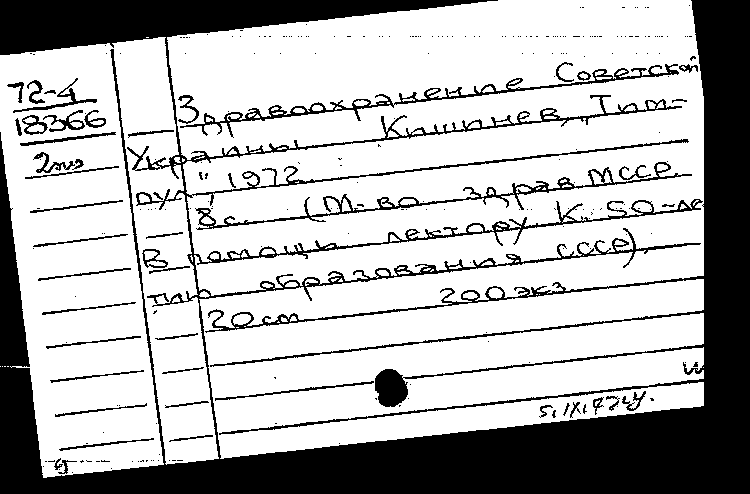 72-4
18366
2экз
Здравоохранение Советской
Украины. Кишинев, "Тим-
пул", 1972.
8с. (М-во здрав МССР.
В помощь лектору К 50-ле
тию образования СССР).
20см 200экз